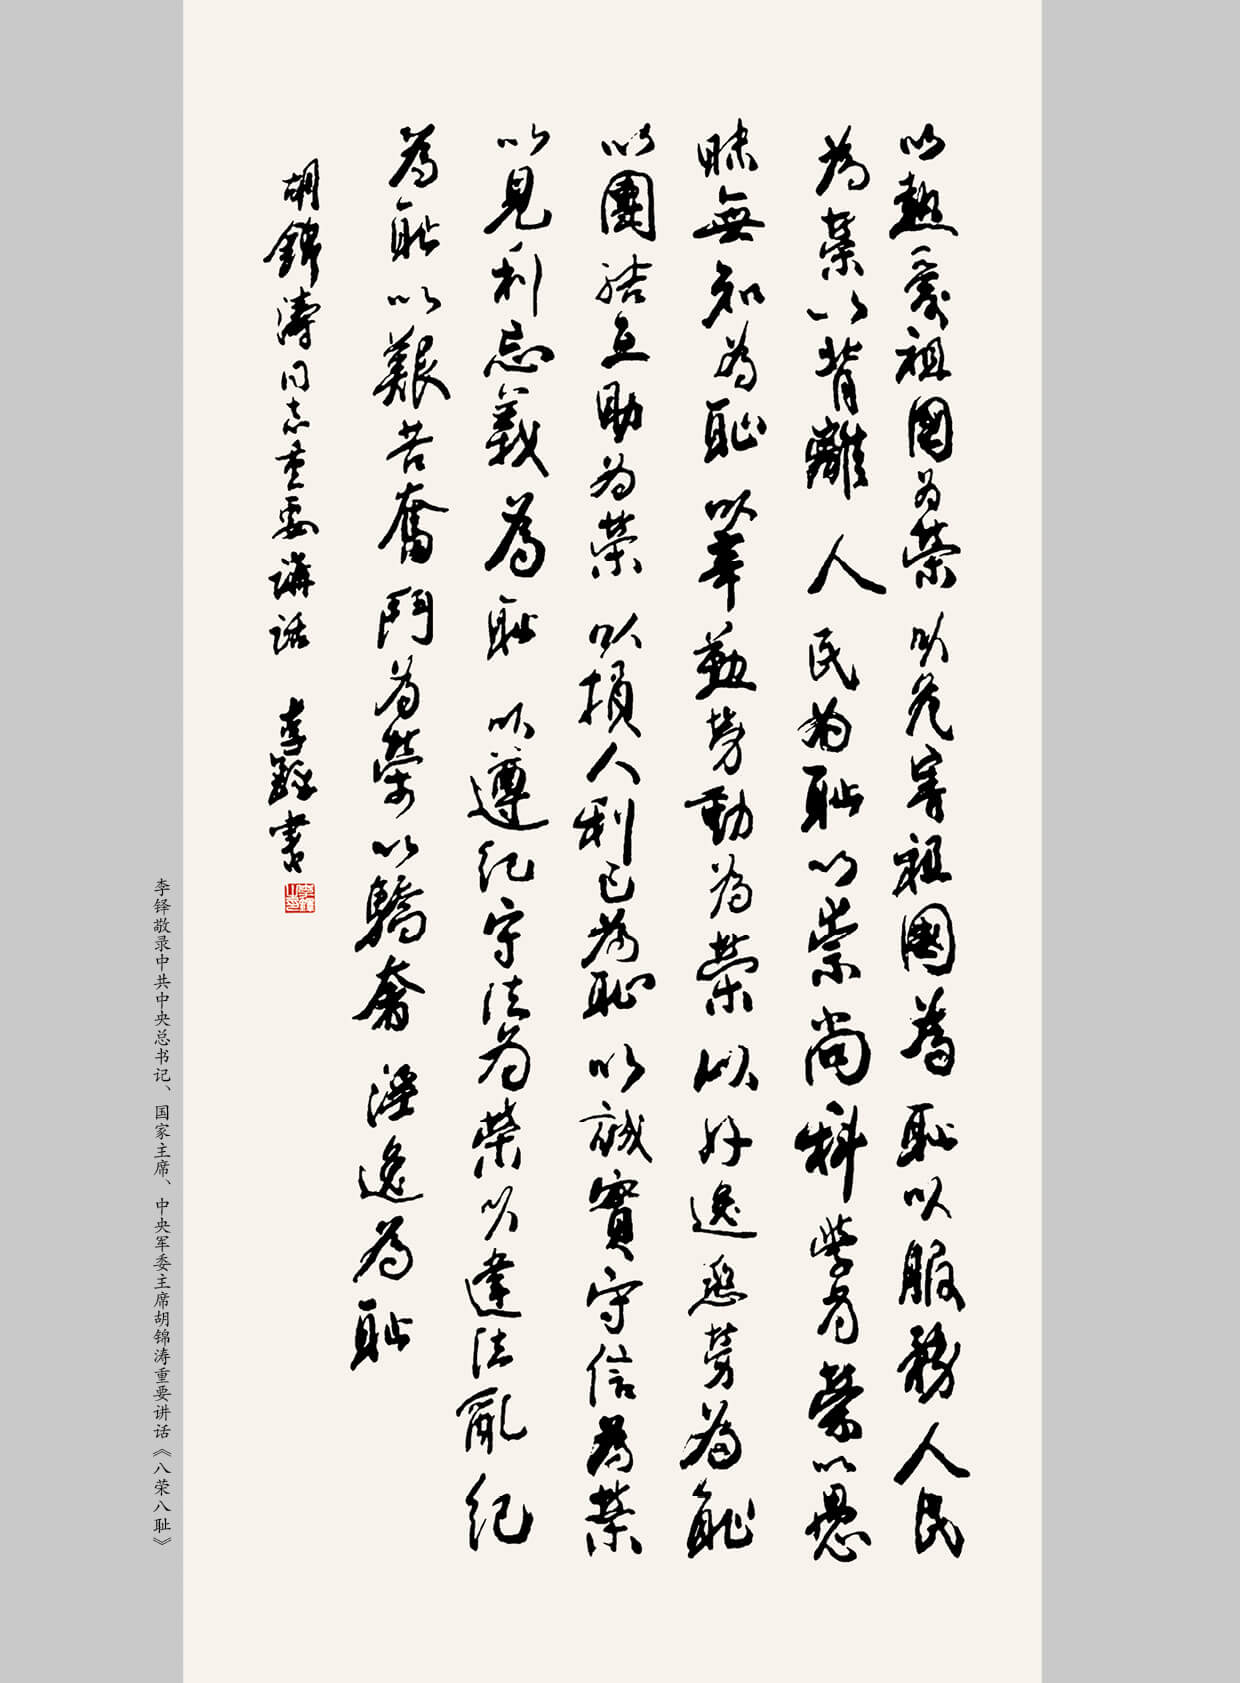 以熱愛祖國为榮以危害祖國為恥以服務人民
為榮以背離人民为恥以崇尚科學为榮以愚
昧無知為恥以辛勤勞動為榮以好逸惡勞為恥
以團結互助为榮以損人利己為恥以誠實守信為榮
以見利忘義為恥以遵紀守法为榮以違法亂紀
為恥以艱苦奮鬥为榮以驕奢淫逸為恥
胡錦濤同志重要講話 李鐸書
李铎敬录中共中央总书记、国家主席、中央军委主席胡锦涛重要讲话《八荣八耻》